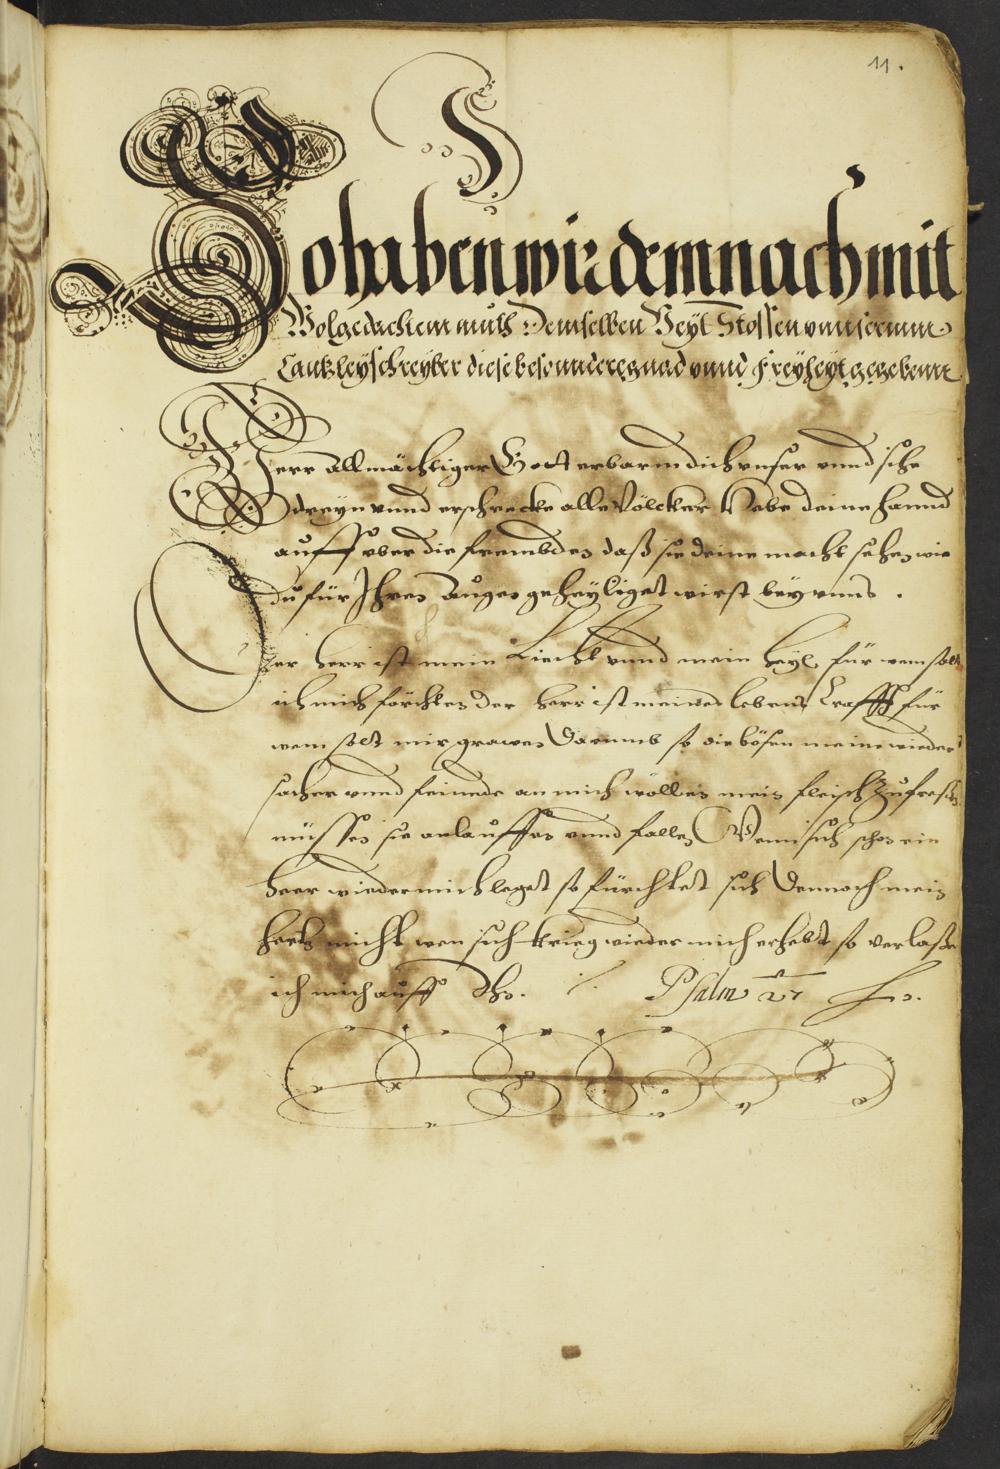 11.
S
So haben wir demnach mit
Wolgedachtem muth Demselben Veyt Stossen unnserem
Cantzleyschreyber diese besonndere gnad unnd Freyheyt gegebenn
Herr Allmächtiger Gott erbarm dich unser unnd sihe
dreyn unnd erschrecke alle Völcker Hebe deine hannd
auff uber die frembden daß sie deine macht sehen wie
du für Ihren Augen geheyliget wirst bey unns .
Der Herr ist mein Liecht unnd mein Heyl, für wem solt
ich mich förchten der Herr ist meines lebens Crafft für
wem solt mir grawen Darumb so die bösen meine wieder
sacher unnd feinede an mich wöllen mein fleisch zufressen
müssen sie anlauffen unnd fallen Wenn sich schon ein
Heer wieder mich leget so fürchtet sich Dennoch mein
Hertz nicht wen sich krieg wieder mich erhebt so verlaße
ich mich auff Ihn. Psalm 27